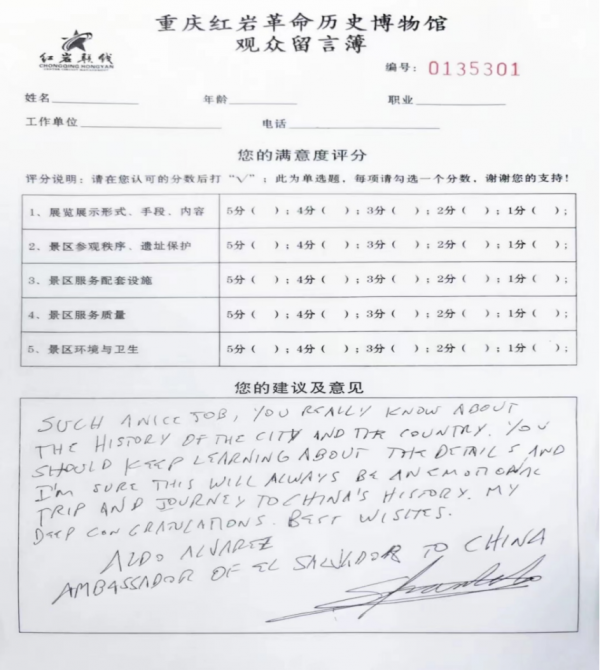 重庆红岩革命历史博物馆
观众留言簿
红岩联线
CHONGQING HONGYAN
编号: 0135301
姓名 年龄 职业
工作单位 电话
您的满意度评分
评分说明: 请在您认可的分数后打 “√” ; 此为单选题, 每项请勾选一个分数, 谢谢您的支持!
1、展览展示形式、手段、内容 5分 ( ) ; 4分 ( ) ; 3分 ( ) ; 2分 ( ) ; 1分 ( ) ;
2、景区参观秩序、遗址保护 5分 ( ) ; 4分 ( ) ; 3分 ( ) ; 2分 ( ) ; 1分 ( ) ;
3、景区服务配套设施 5分 ( ) ; 4分 ( ) ; 3分 ( ) ; 2分 ( ) ; 1分 ( ) ;
4、景区服务质量 5分 ( ) ; 4分 ( ) ; 3分 ( ) ; 2分 ( ) ; 1分 ( ) ;
5、景区环境与卫生 5分 ( ) ; 4分 ( ) ; 3分 ( ) ; 2分 ( ) ; 1分 ( ) ;
您的建议及意见
SUCH A NICE JOB, YOU REALLY KNOW ABOUT
THE HISTORY OF THE CITY AND THE COUNTRY. YOU
SHOULD KEEP LEARNING ABOUT THE DETAILS AND
I'M SURE THIS WILL ALWAYS BE AN EMOTIONAL
TRIP AND JOURNEY TO CHINA'S HISTORY. MY
DEEP CONGRATULATIONS. BEST WISHES.
ALDO ALVAREZ
AMBASSADOR OF EL SALVADOR TO CHINA